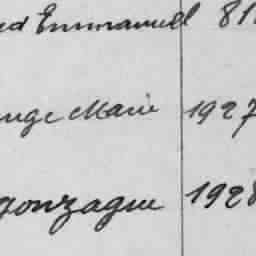 Emmanuel 81
Marie 1927
gonzague 1928